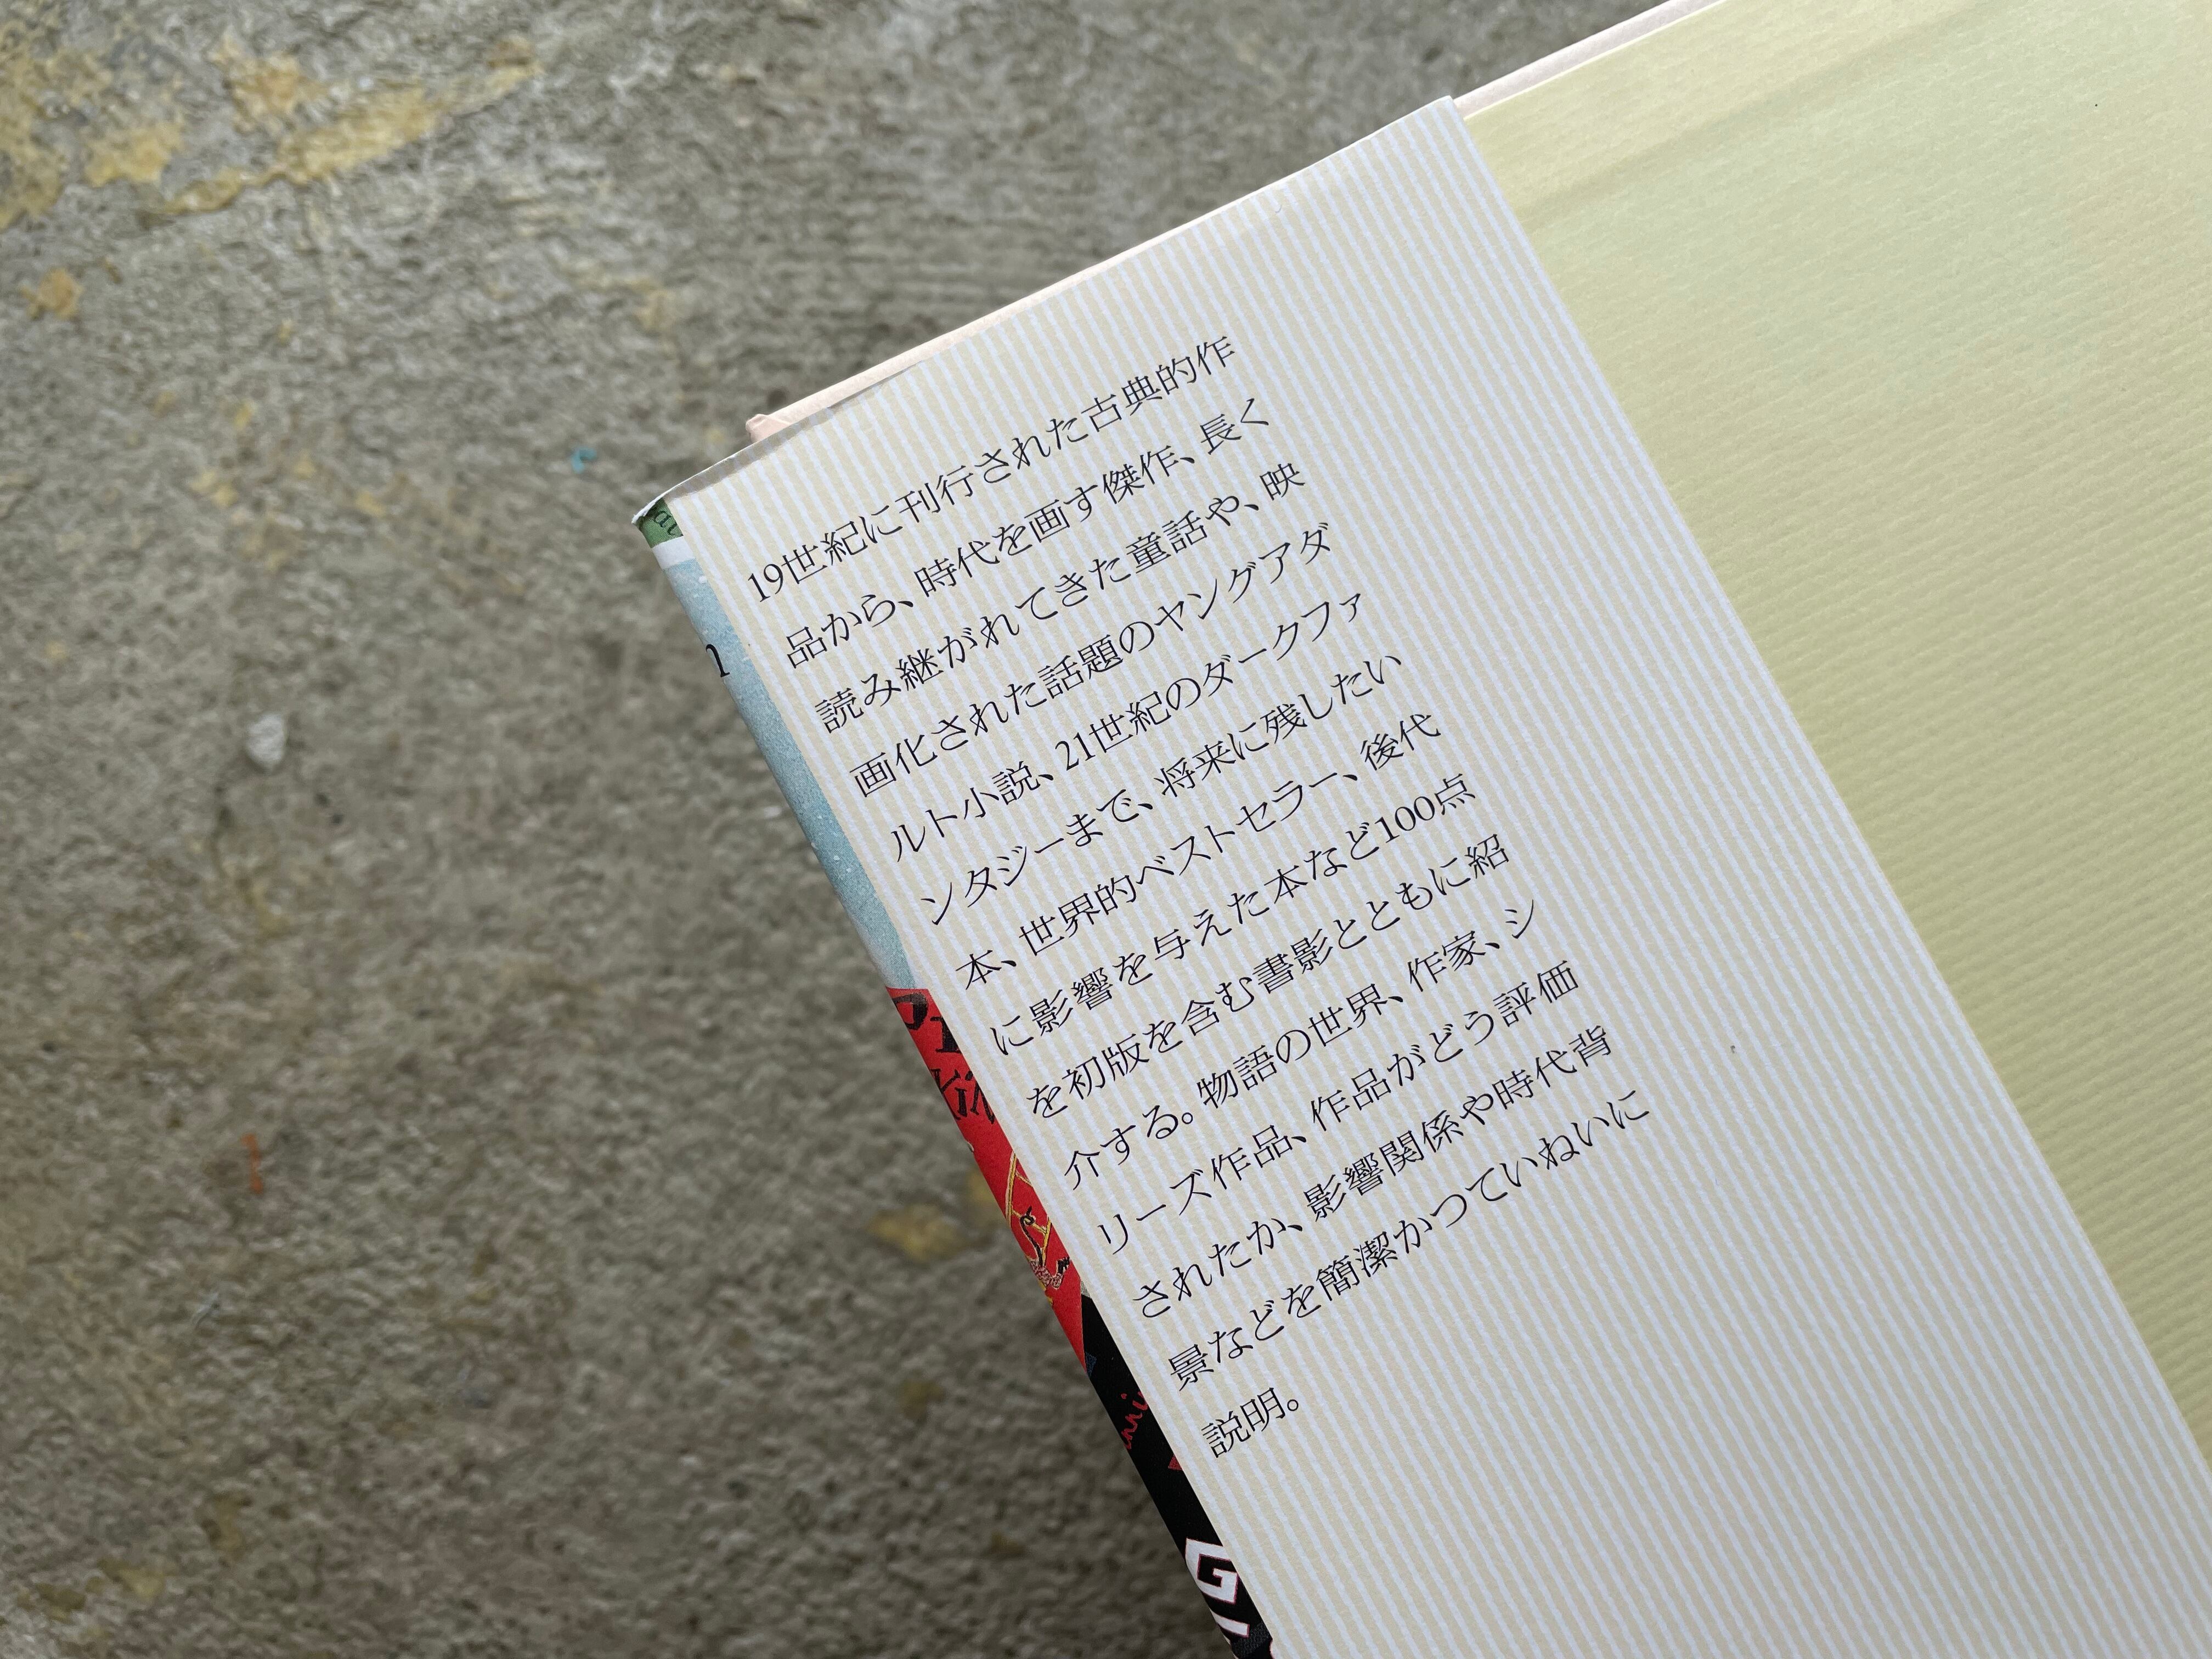 19世紀に刊行された古典的作
品から、時代を画す傑作、長く
読み継がれてきた童話や、映
画化された話題のヤングアダ
ルト小説、21世紀のダークファ
ンタジーまで、将来に残したい
本、世界的ベストセラー、後代
に影響を与えた本など100点
を初版を含む書影とともに紹
介する。物語の世界、作家、シ
リーズ作品、作品がどう評価
されたか、影響関係や時代背
景などを簡潔かつていねいに
説明。